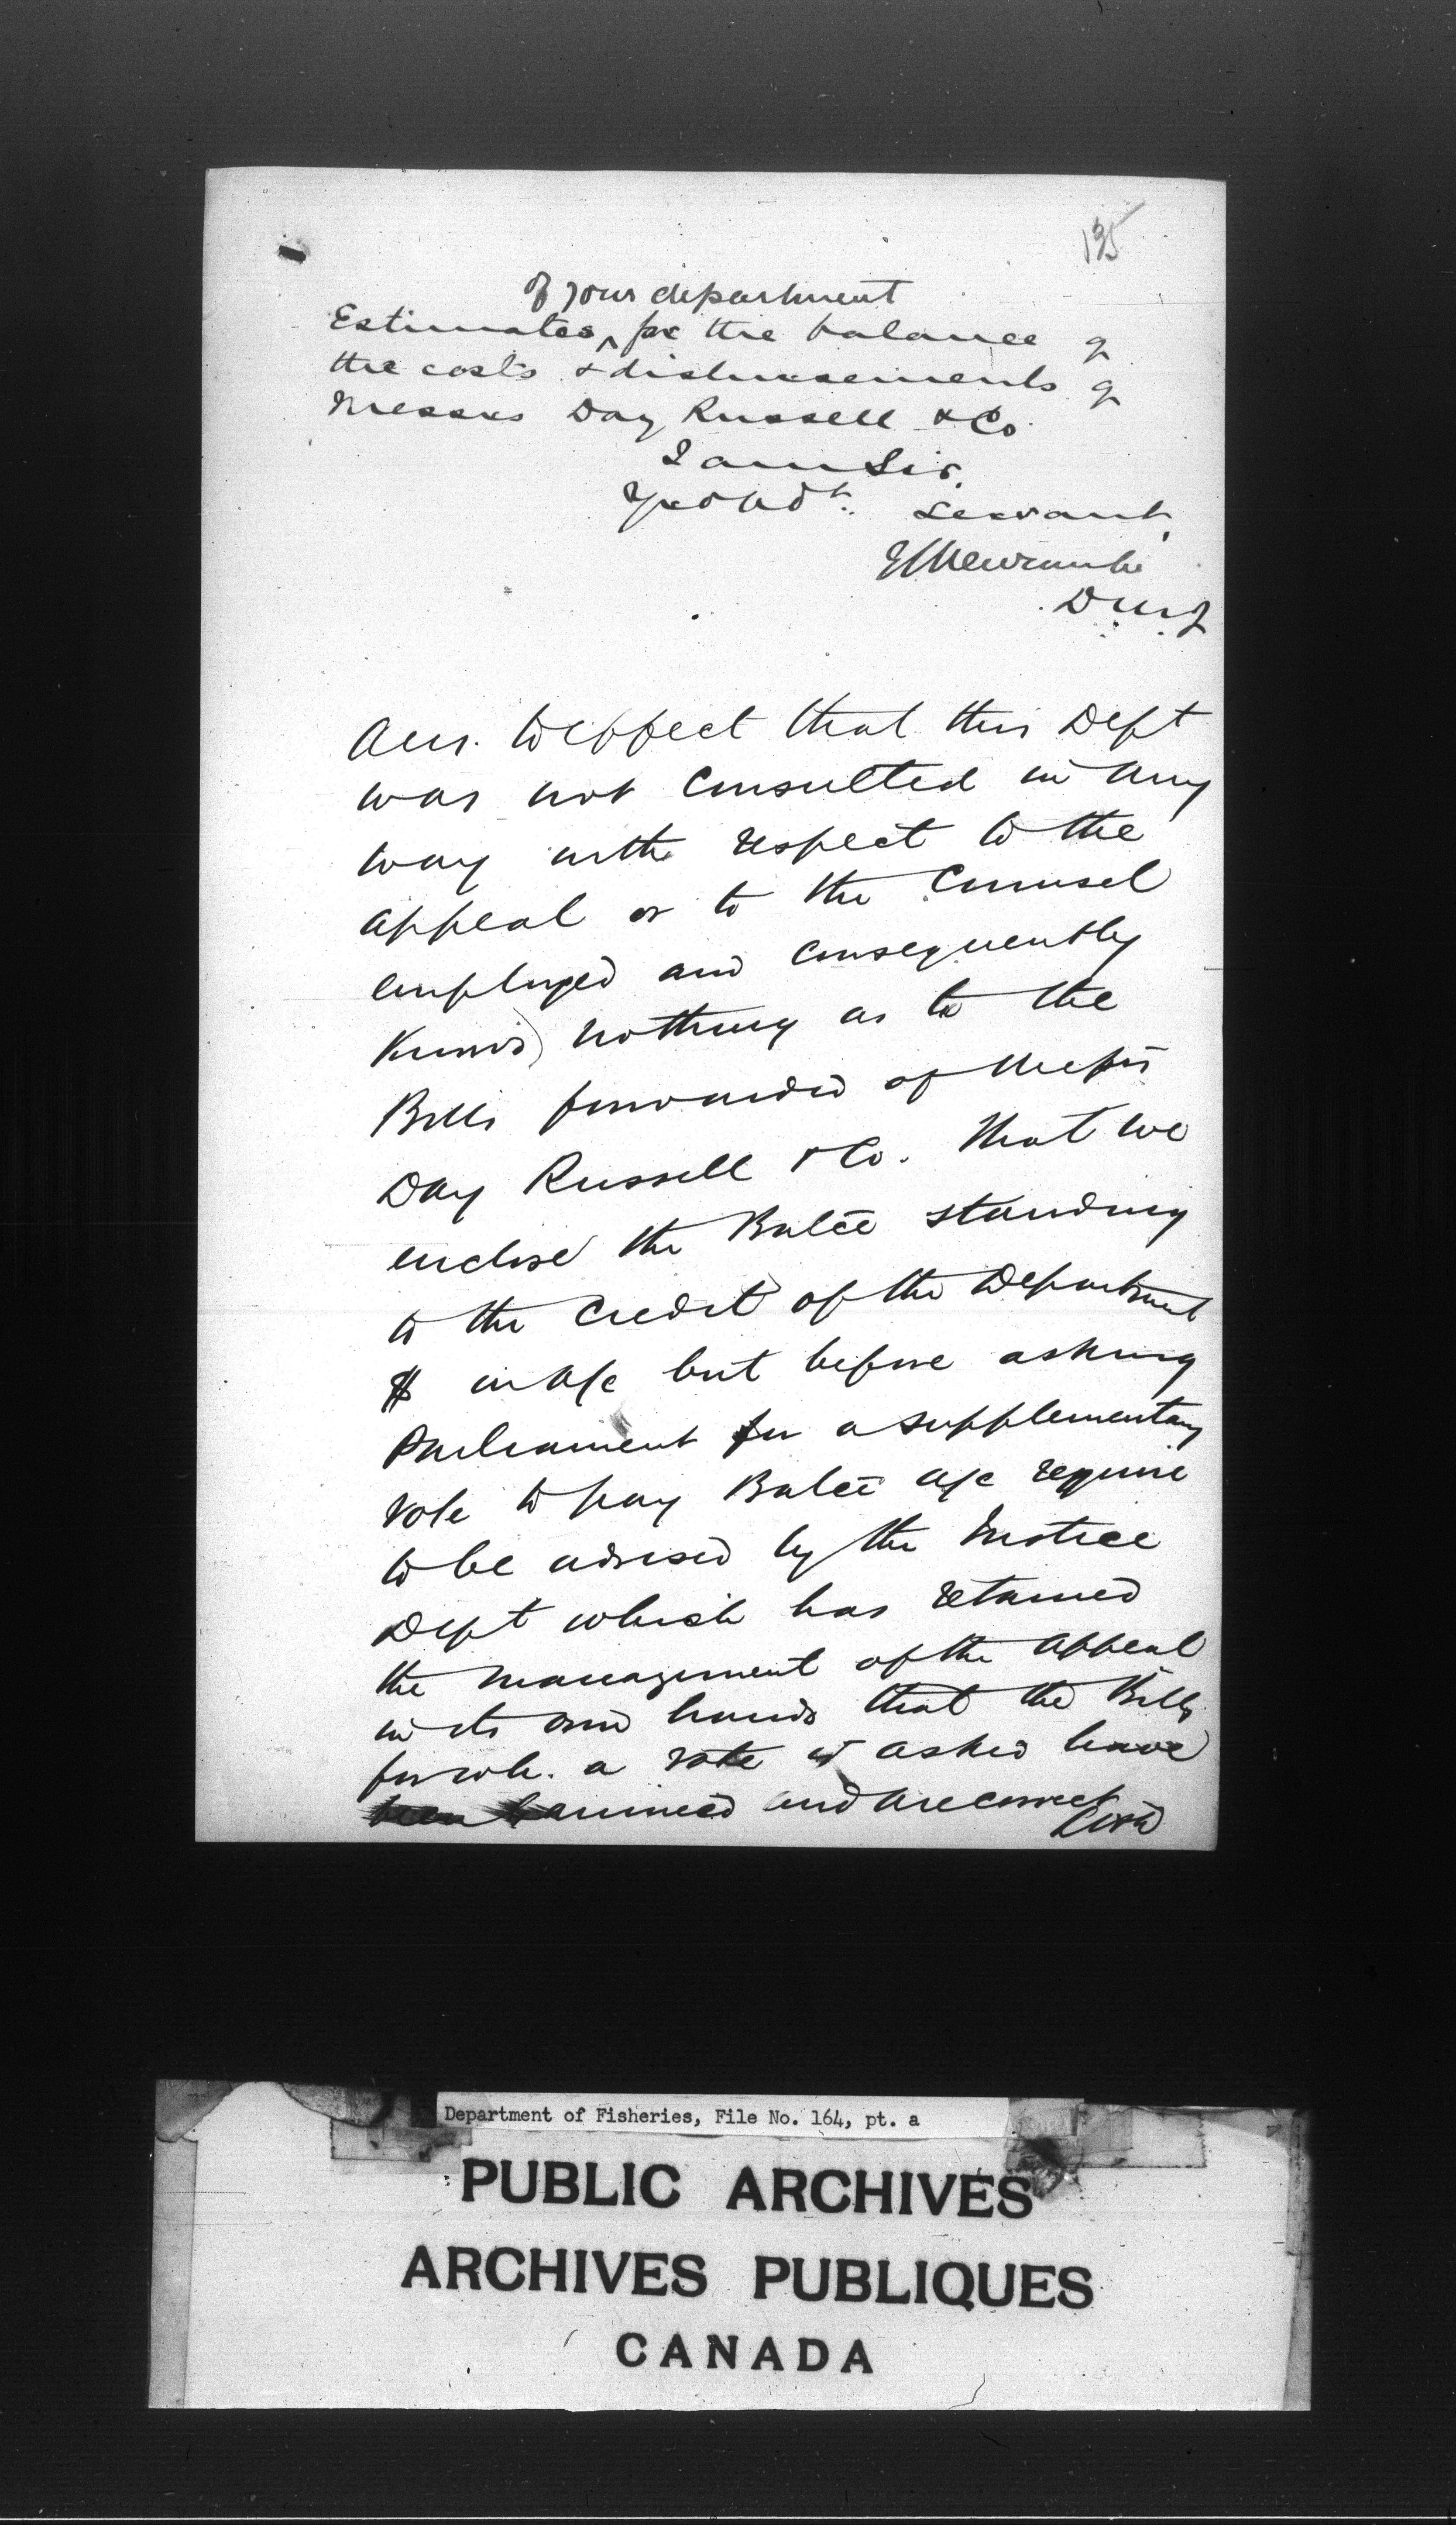 135
of your department
Estimates, for the balance of
the costs & disbursements of
Messrs Day Russell & Co.
I am Sir,
Yr obdt. Servant,
E L Newcombe
D.M.J
Ans. to effect that this Dept
was not Consulted in any
way with respect to the
appeal or to the Counsel
employed and consequently
Knows nothing as to the
Bills forwarded of Messrs
Day Russell & Co. That we
enclose the Balce standing
to the Credit of the Department
$ in a/c but before asking
Parliament for a supplementary
vote to pay Balce a/c require
to be advised by the Justice
Dept which has retained
the management of the appeal
in its own hands that the Bills
for wh. a vote is asked have
been examined and are correct
Department of Fisheries, File No. 164, pt. a
PUBLIC ARCHIVES
ARCHIVES PUBLIQUES
CANADA